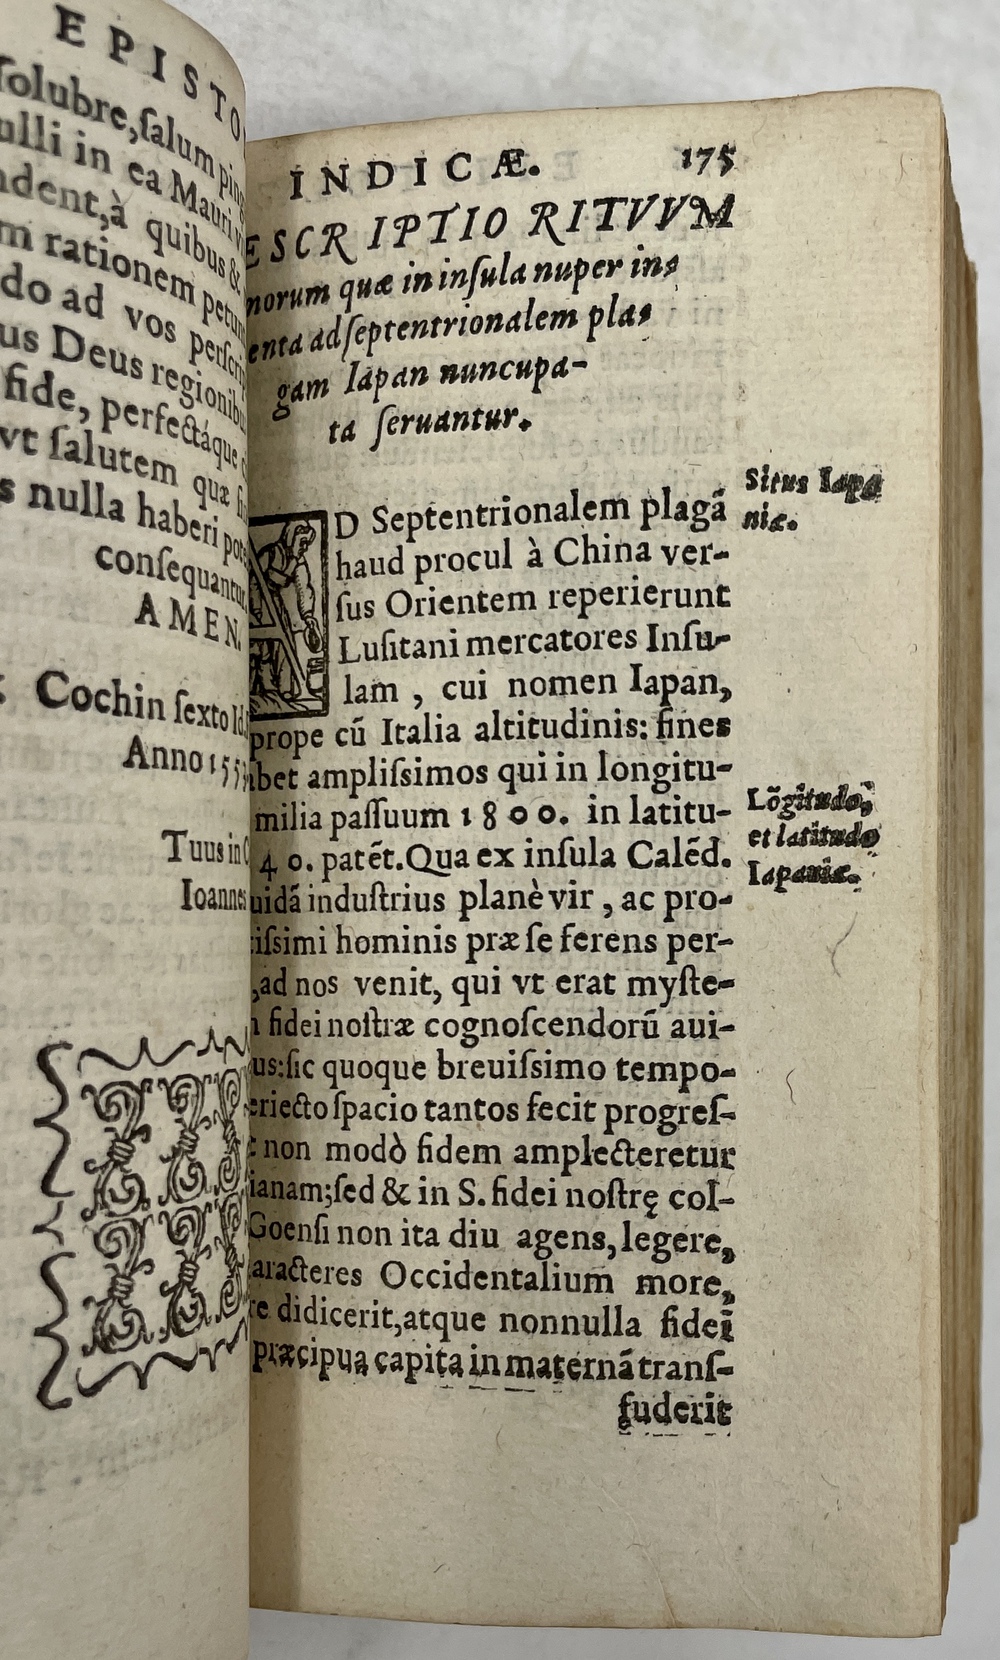 EPISTO
solubre, salum
ulli in ea Mauri
ndent, à quibus &
m rationem
do ad vos
us Deus
fide, perfectáque
vt salutem quæ
s nulla haberi
consequantur
AMEN.
Cochin sexto Id
Anno 155
Tuus in
Ioannes
INDICÆ. 175
ESCRIPTIO RITVVM
norum quæ in insula nuper in-
enta ad septentrionalem pla-
gam Iapan nuncupa-
ta seruantur.
D Septentrionalem plagã
haud procul à China ver-
sus Orientem reperierunt
Lusitani mercatores Insu-
lam, cui nomen Iapan,
prope cũ Italia altitudinis: fines
bet amplissimos qui in longitu-
milia passuum 1800. in latitu-
40. patẽt. Qua ex insula Calẽd.
uidã industrius planè vir, ac pro-
issimi hominis præ se ferens per-
, ad nos venit, qui vt erat myste-
fidei nostræ cognoscendorũ aui-
us: sic quoque breuissimo tempo-
eriecto spacio tantos fecit progres-
non modò fidem amplecteretur
ianam; sed & in S. fidei nostrę col-
Goensi non ita diu agens, legere,
aracteres Occidentalium more,
re didicerit, atque nonnulla fidei
præcipua capita in maternã transf-
fuderit
Situs Iapa
niæ.
Lõgitudo,
et latitudo
Iapaniæ.